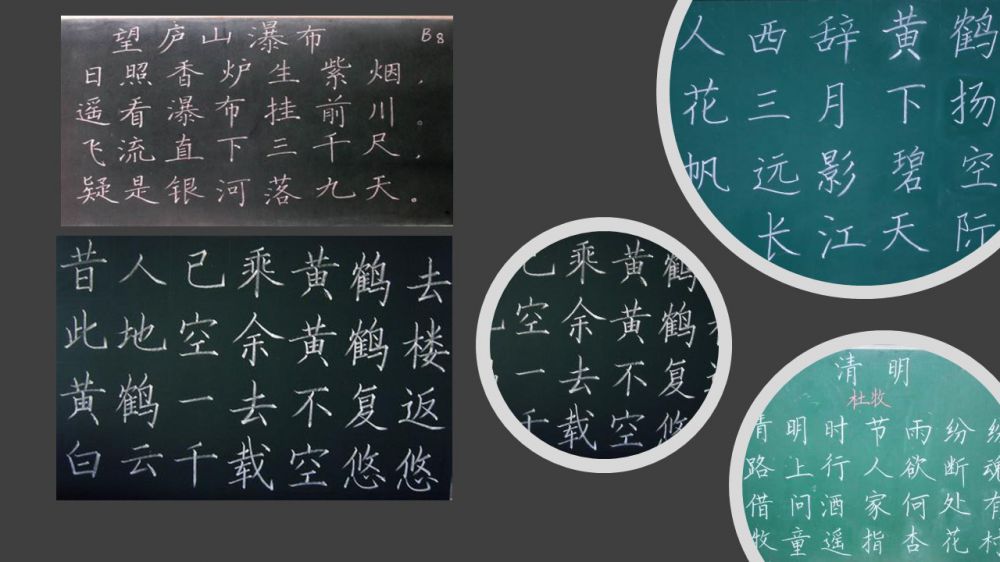 望庐山瀑布 B8
日照香炉生紫烟，
遥看瀑布挂前川。
飞流直下三千尺，
疑是银河落九天。
昔人已乘黄鹤去
此地空余黄鹤楼
黄鹤一去不复返
白云千载空悠悠
乘黄鹤
空余黄鹤
一去不复
千载空悠
人西辞黄鹤
花三月下扬
帆远影碧空
长江天际
清明
杜牧
清明时节雨纷纷
路上行人欲断魂
借问酒家何处有
牧童遥指杏花村